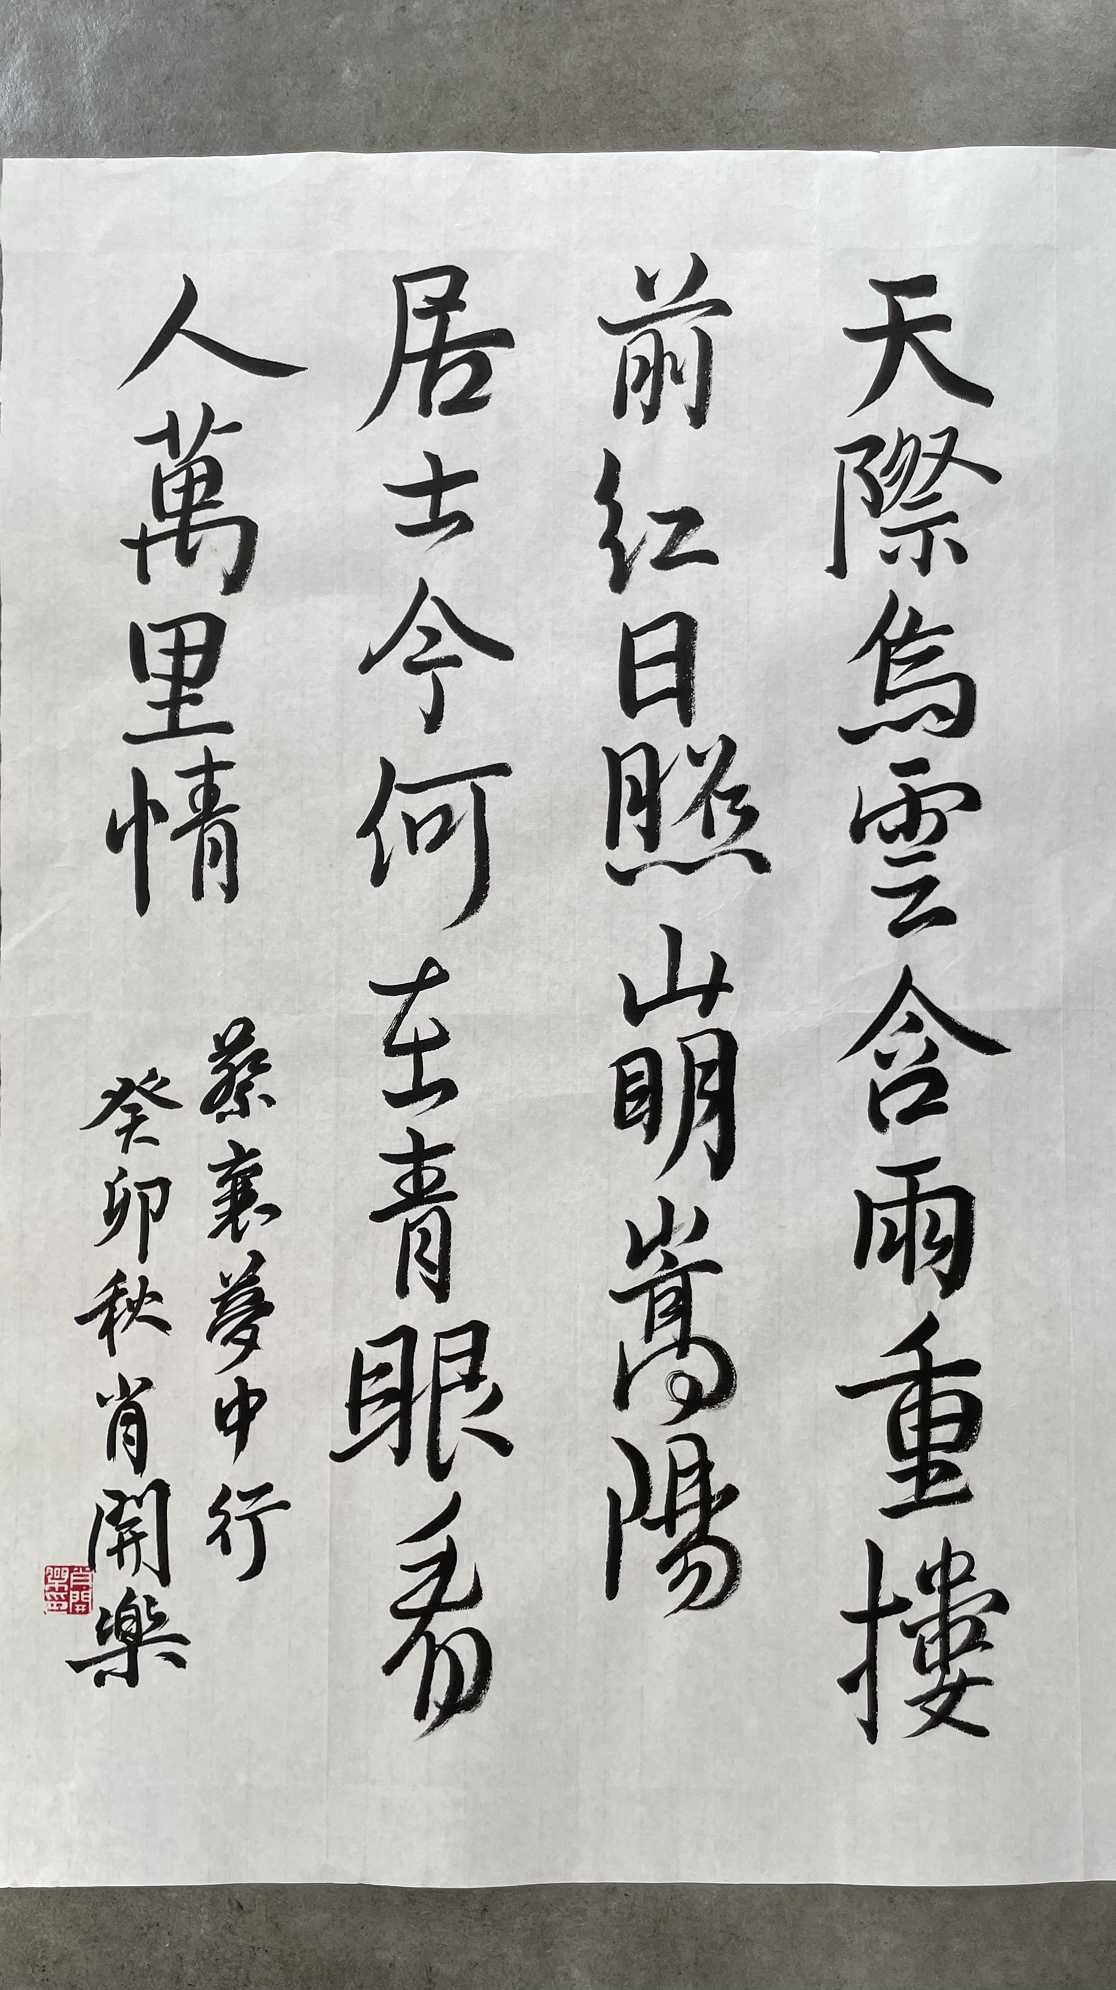 天際烏雲含雨重摟
前紅日照山明嵩陽
居士今何在青眼看
人萬里情
蔡襄夢中行
癸卯秋肖開樂
肖開樂印